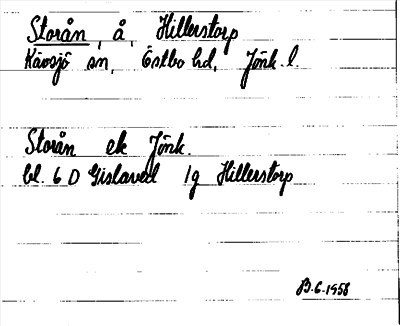 Storån, å, Hillerstorp
Kävsjö sn, Östbo hd, Jönk. l.
Storån ek Jönk.
bl. 6 D Gislaved 1g Hillerstorp
B.G. 1958